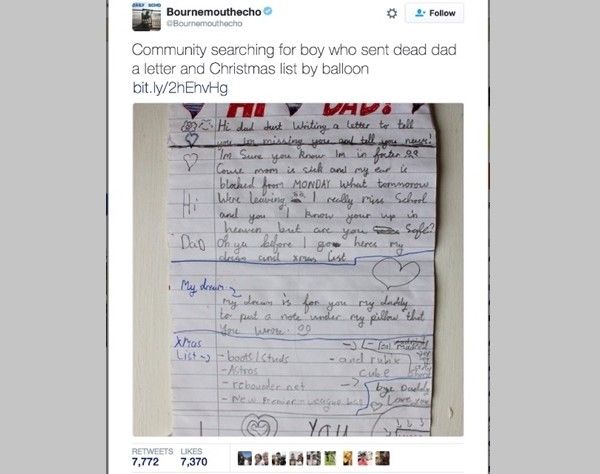 Bournemouthecho
@Bournemouthecho
Follow
Community searching for boy who sent dead dad
a letter and Christmas list by balloon
bit.ly/2hEhvHg
HI DAD!
Hi dad Just Writing a letter to tell
you Im missing you and tell you news!
Im Sure you know Im in
Couse mom is sick and my ear is
blocked from MONDAY what tommorow
Were leaving I really Miss School
Hi and you I know your up in
heaven but are you Safe?
Dad Oh ya before I go heres my
and xmas list
My dream
my dream is for you my daddy
to put a note under my pillow that
You wrote.
XMas
List
- boots/Studs
- and rubik
cube
- Astros
- rebounder net
- New Premier league
bye Daddy
Love you
You
RETWEETS 7,772
LIKES 7,370